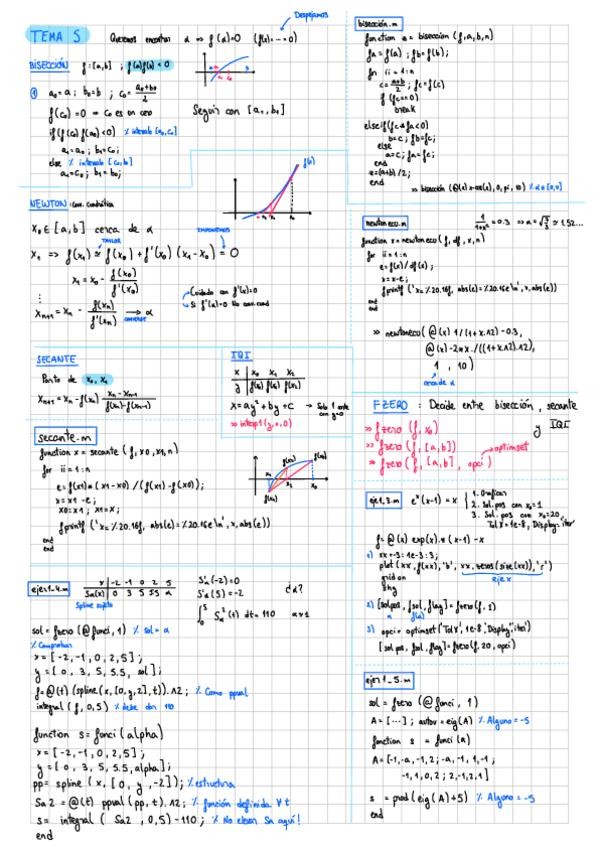 TEMA 5
Queremos encontrar α => f(α)=0 (f(x)=...=0)
Despejamos
BISECCIÓN f:[a,b] ; f(a)f(b)<0
① a₀=a ; b₀=b ; c₀= (a₀+b₀)/2
f(c₀)=0 => c₀ es un cero
Seguir con [a₁,b₁]
if (f(c₀) f(a₀)<0) % intervalo [a₀,c₀]
a₁=a₀ ; b₁=c₀;
else % intervalo [c₀,b]
a₁=c₀ ; b₁=b₀;
NEWTON: conv. cuadrática
x₀∈[a,b] cerca de α
TAYLOR
IMPONEMOS
x₁ => f(x₁) ≈ f(x₀) + f'(x₀) (x₁-x₀) = 0
x₁ = x₀ - f(x₀)/f'(x₀)
Cuidado con f'(x)=0
Si f'(α)=0 No conv. cuad
xₙ₊₁ = xₙ - f(xₙ)/f'(xₙ) → α
CONVERGE
SECANTE
Parto de x₀, x₁
xₙ₊₁ = xₙ - f(xₙ) (xₙ-xₙ₋₁)/(f(xₙ)-f(xₙ₋₁))
IQI
x x₀ x₁ x₂
y f(x₀) f(x₁) f(x₂)
x = ay²+by+c → Solo 1 corte con y=0
>> interp1(y,x,0)
secante.m
function x = secante (f, x0, x1, n)
for ii = 1:n
e = f(x1)*(x1-x0)/(f(x1)-f(x0));
x = x1-e;
x0=x1; x1=x;
fprintf('x=%20.16f, abs(e)=%20.16e\n', x, abs(e))
end
end
ejer1_4.m
x -2 -1 0 2 5
Sα(x) 0 3 5 5.5 α
Spline sujeto
S'α(-2)=0
S'α(5)=-2
¿α?
∫₀⁵ Sα²(t) dt = 110
sol = fzero(@funci, 1) % sol = α
% Comprobar
x=[-2,-1,0,2,5];
y=[0, 3, 5, 5.5, sol];
f=@(t) (spline(x,[0,y,2],t)).^2; % Como ppval
integral(f,0,5) % debe dar 110
function s=funci(alpha)
x=[-2,-1,0,2,5];
y=[0, 3, 5, 5.5, alpha];
pp= spline(x, [0, y, -2]); % estructura
Sa2 = @(t) ppval(pp, t).^2; % función definida ∀t
s= integral(Sa2, 0, 5)-110; % No elevar Sa aquí!
end
bisección.m
function e = biseccion (f,a,b,n)
fa=f(a) ; fb=f(b);
for ii = 1:n
c=(a+b)/2 ; fc=f(c)
if (fc==0)
break
elseif (fc*fa<0)
b=c; fb=fc;
else
a=c; fa=fc;
end
e=(a+b)/2;
end
>> biseccion (@(x) x-cos(x), 0, pi, 10)
newtonecu.m
1/(1+x²) = 0.3
function x=newtonecu(f, df, x, n)
for ii=1:n
e=f(x)/df(x);
x=x-e;
fprintf('x=%20.16f, abs(e)=%20.16e\n', x, abs(e))
end
end
>> newtonecu(@(x) 1/(1+x.^2)-0.3,
@(x) -2*x./((1+x.^2).^2),
1, 10)
cerca de α
FZERO: Decide entre bisección, secante
y IQI
>> fzero(f, x₀)
>> fzero(f, [a,b])
>> fzero(f, [a,b], opci)
optimset
ejer1_3.m eˣ(x-1) = x
1. Graficar
2. Sol. pos con x₀=1
3. Sol. pos con x₀=20,
TolX=1e-8, Display='iter'
f=@(x) exp(x).*(x-1)-x
1) xx=-3:1e-3:3;
plot(xx, f(xx), 'b', xx, zeros(size(xx)), 'r')
grid on
eje x
2) [solpos, fsol, flag]=fzero(f, 1)
α f(α)
3) opci= optimset('TolX', 1e-8, 'Display', 'iter')
[solpos, fsol, flag]=fzero(f, 20, opci)
ejer1_5.m
sol = fzero(@funci, 1)
A=[...] ; autov=eig(A) % Alguno=-5
function s = funci(a)
A=[-1,-a,-1,2;-a,-1,1,-1;
-1,1,0,2; 2,-1,2,1]
s = prod(eig(A)+5) % Alguno=-5
end